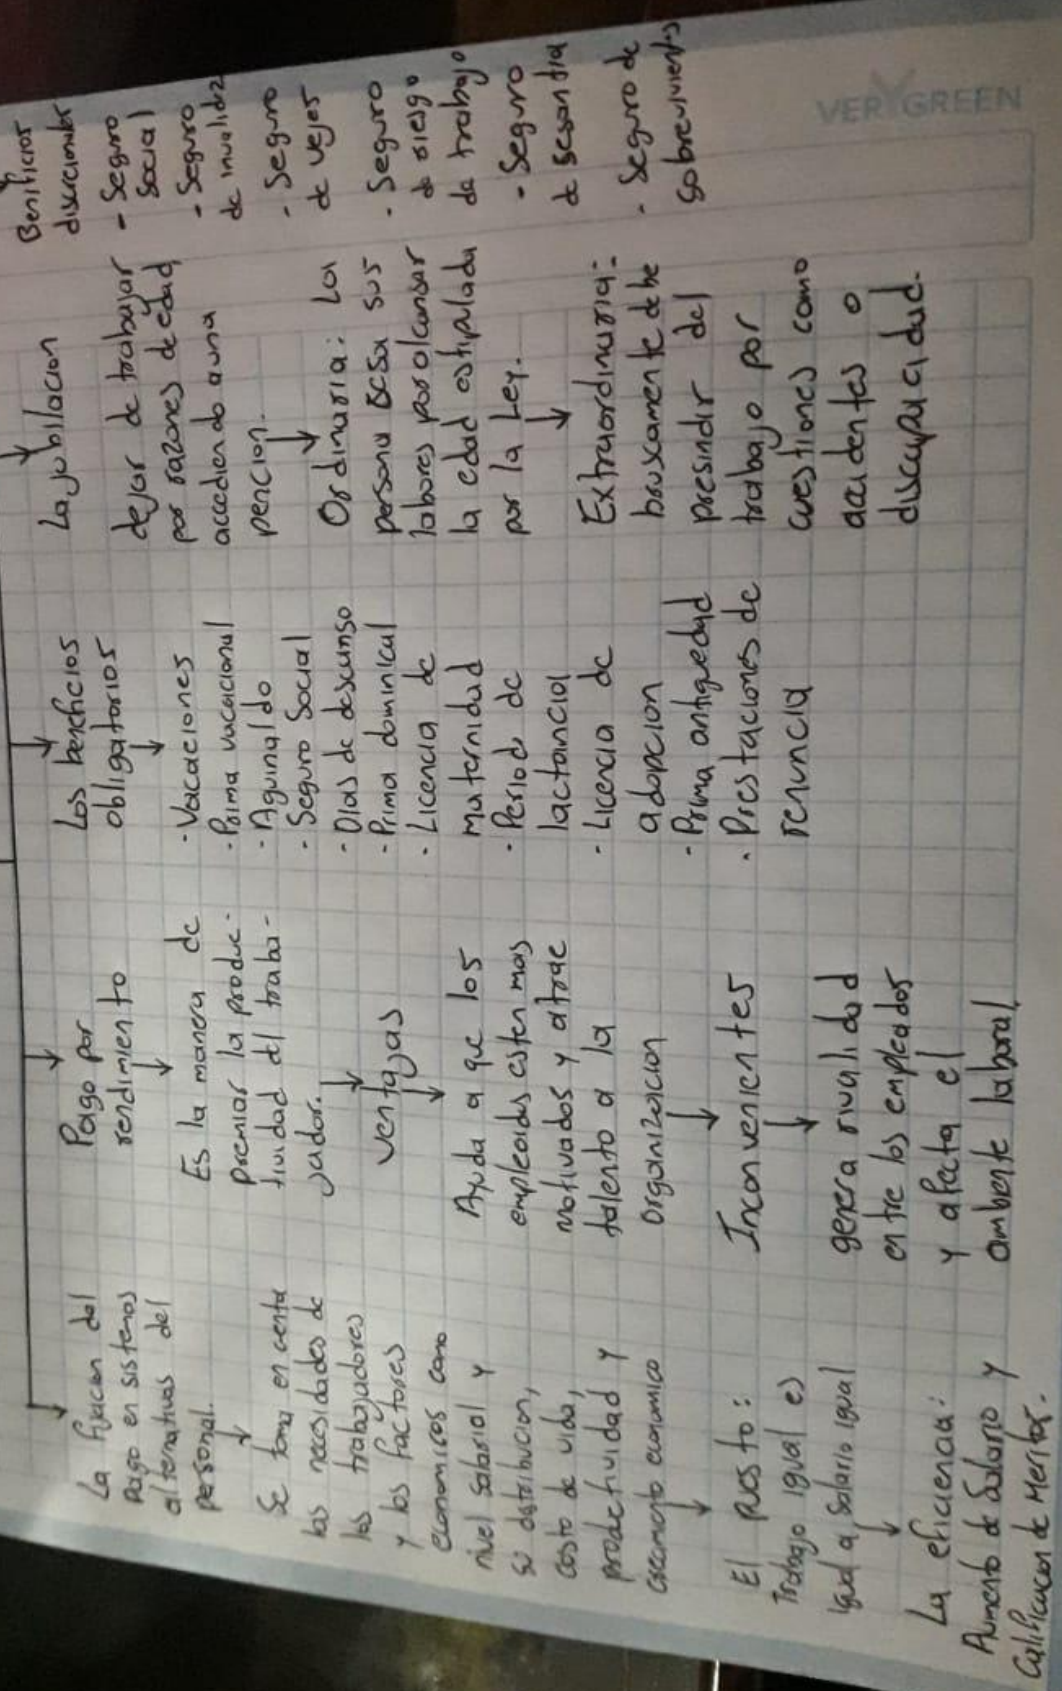 La fijacion del
pago en sistemas
alternativos del
personal.
Se toma en centa
las necesidades de
los trabajadores
y los factores
economicos como
nivel salarial y
su distribucion,
costo de vida,
productividad y
crecimiento economico
El puesto:
Trabajo igual es
igual a salario igual
La eficiencia:
Aumento de Salario y
Calificacion de Meritos.
Pago por
rendimiento
Es la manera de
premiar la produc-
tividad del traba-
jador.
ventajas
Ayuda a que los
empleados esten mas
motivados y atrae
talento a la
organizacion
Inconvenientes
genera rivalidad
entre los empleados
y afecta el
ambiente laboral
Los beneficios
obligatorios
- Vacaciones
- Prima vacacional
- Aguinaldo
- Seguro Social
- Dias de descanso
- Prima dominical
- Licencia de
maternidad
- Period de
lactancia
- Licencia de
adopcion
- Prima antiguedad
- Prestaciones de
renuncia
La jubilacion
dejar de trabajar
por razones de edad
accediendo a una
pencion.
Ordinaria: La
persona cesa sus
labores por alcansar
la edad estipulada
por la Ley.
Extraordinaria:
bruscamente debe
presindir del
trabajo por
cuestiones como
accidentes o
discapacidad.
Benificios
discrecionales
- Seguro
Social
- Seguro
de invalidez
- Seguro
de vejes
- Seguro
de riesgo
de trabajo
- Seguro
de sesantia
- Seguro de
sobrevivientes
VERYGREEN